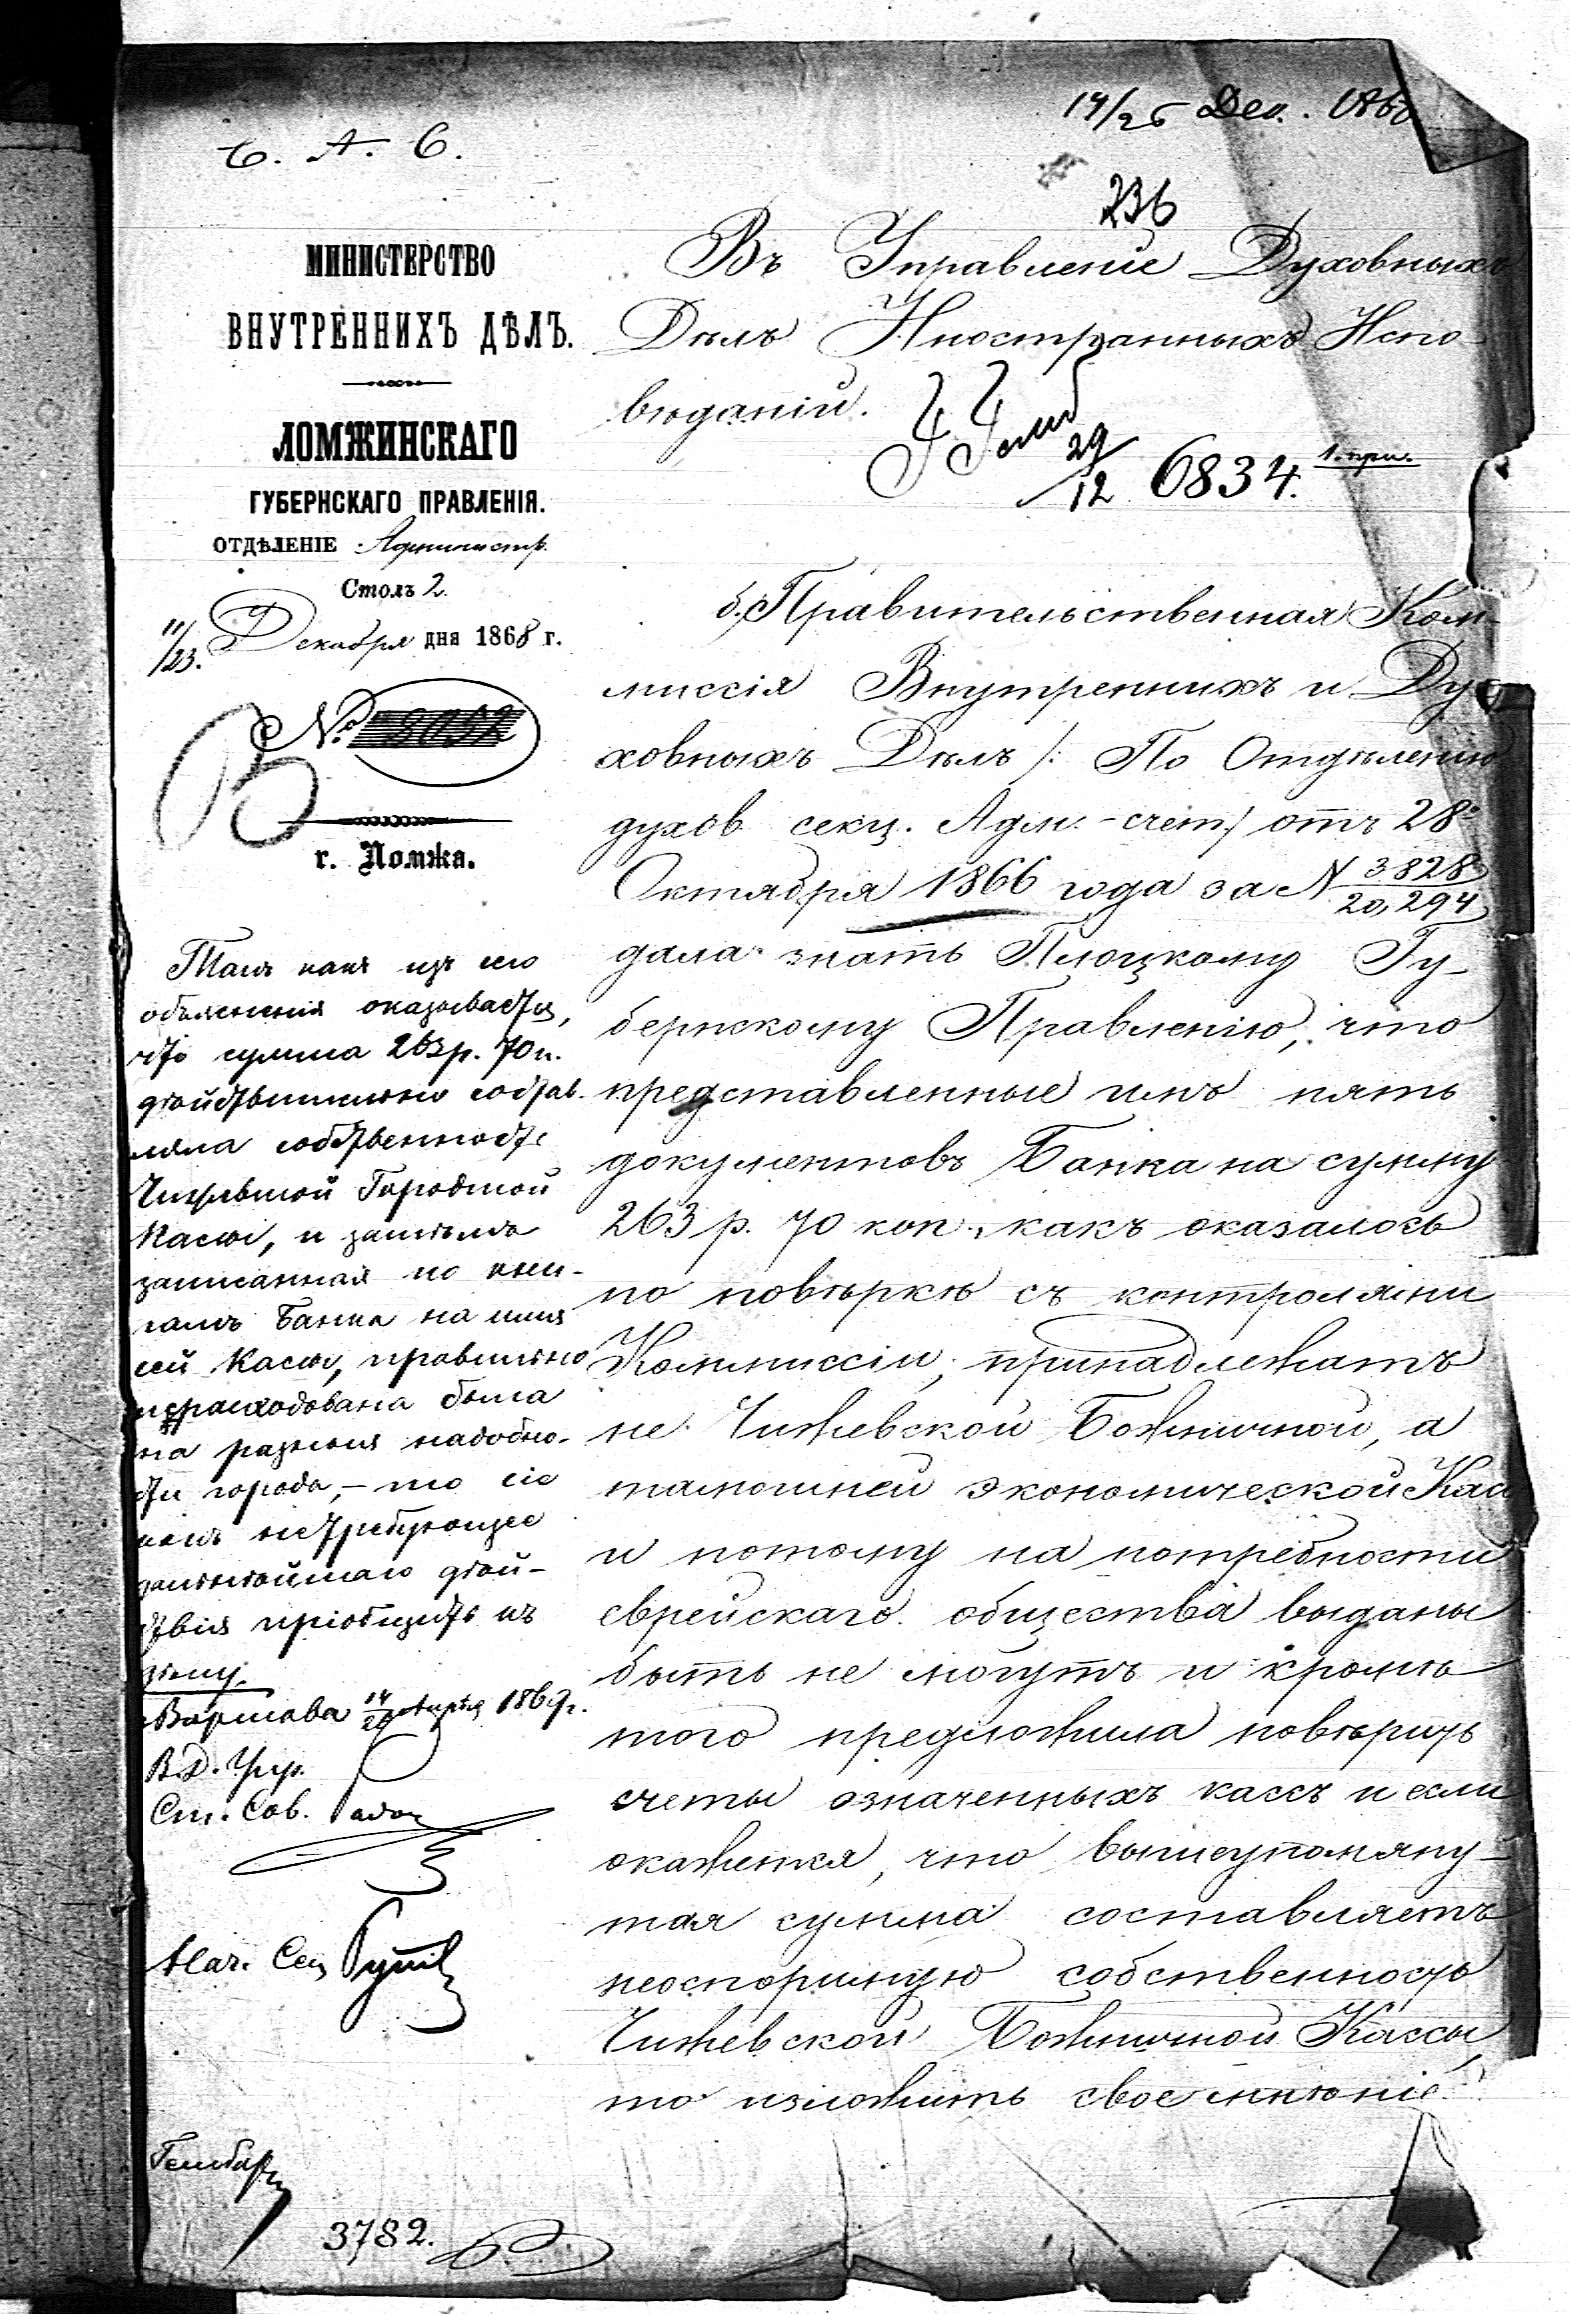 14/26 Дек. 186
С. А. С.
236
МИНИСТЕРСТВО
ВНУТРЕННИХЪ ДѢЛЪ.
ЛОМЖИНСКАГО
ГУБЕРНСКАГО ПРАВЛЕНІЯ.
ОТДѢЛЕНІЕ Администр.
Столъ 2.
11/23. Декабря дня 1868 г.
№ 8052
г. Ломжа.
Въ Управленіе Духовныхъ
Дѣлъ Иностранныхъ Испо-
вѣданій.
29/12 6834. 1 при.
б. Правительственная Ком-
миссія Внутреннихъ и Ду-
ховныхъ Дѣлъ /: По Отдѣленію
духов секц. Адм.-счет/ отъ 28го
Октября 1866 года за N 3828/20,294
дала знать Плоцкому Гу-
бернскому Правленію, что
представленные имъ пять
документовъ Банка на сумму
263 р. 70 коп., какъ оказалось
по повѣркѣ съ контролями
Коммиссіи, принадлежатъ
не Чижевской Божничной, а
тамошней экономической Кас
и потому на потребности
еврейскаго общества выданы
быть не могутъ и кромѣ
того предложила повѣрить
счеты означенныхъ кассъ и если
окажется, что вышеупомяну-
тая сумма составляетъ
неоспоримую собственность
Чижевской Божничной Кассы
то изложить свое мнѣніе
Такъ какъ изъ сего
объясненія оказывается,
что сумма 263 р. 70 к.
дѣйствительно состав-
ляла собственность
Чижевской Городской
Кассы, и затѣмъ
записанная по кни-
гамъ Банка на имя
сей Кассы, правильно
израсходована была
на разныя надобно-
сти города, – то сіе
какъ нетребующее
дальнѣйшаго дѣй-
ствія пріобщить къ
дѣлу.
Варшава 14/26 Января 1869 г.
В. Д. Упр.
Ст. Сов.
Нач. Сек
3782.